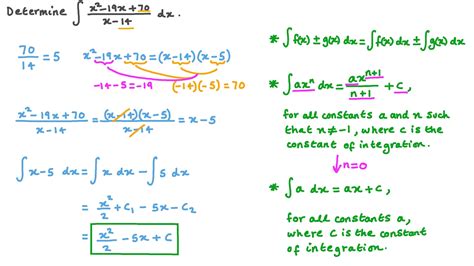 Determine ∫ x²-19x+70 / x-14 dx.
70/14 = 5
x²-19x+70 = (x-14)(x-5)
-14-5=-19 (-14)(-5)=70
x²-19x+70 / x-14 = (x-14)(x-5) / x-14 = x-5
∫ x-5 dx = ∫ x dx - ∫ 5 dx
= x²/2 + C₁ - 5x - C₂
= x²/2 - 5x + C
* ∫f(x) ± g(x) dx = ∫f(x) dx ± ∫g(x) dx
* ∫axⁿ dx = axⁿ⁺¹ / n+1 + C,
for all constants a and n such
that n≠-1, where C is the
constant of integration.
↓ n=0
* ∫a dx = ax + C,
for all constants a,
where C is the constant
of integration.